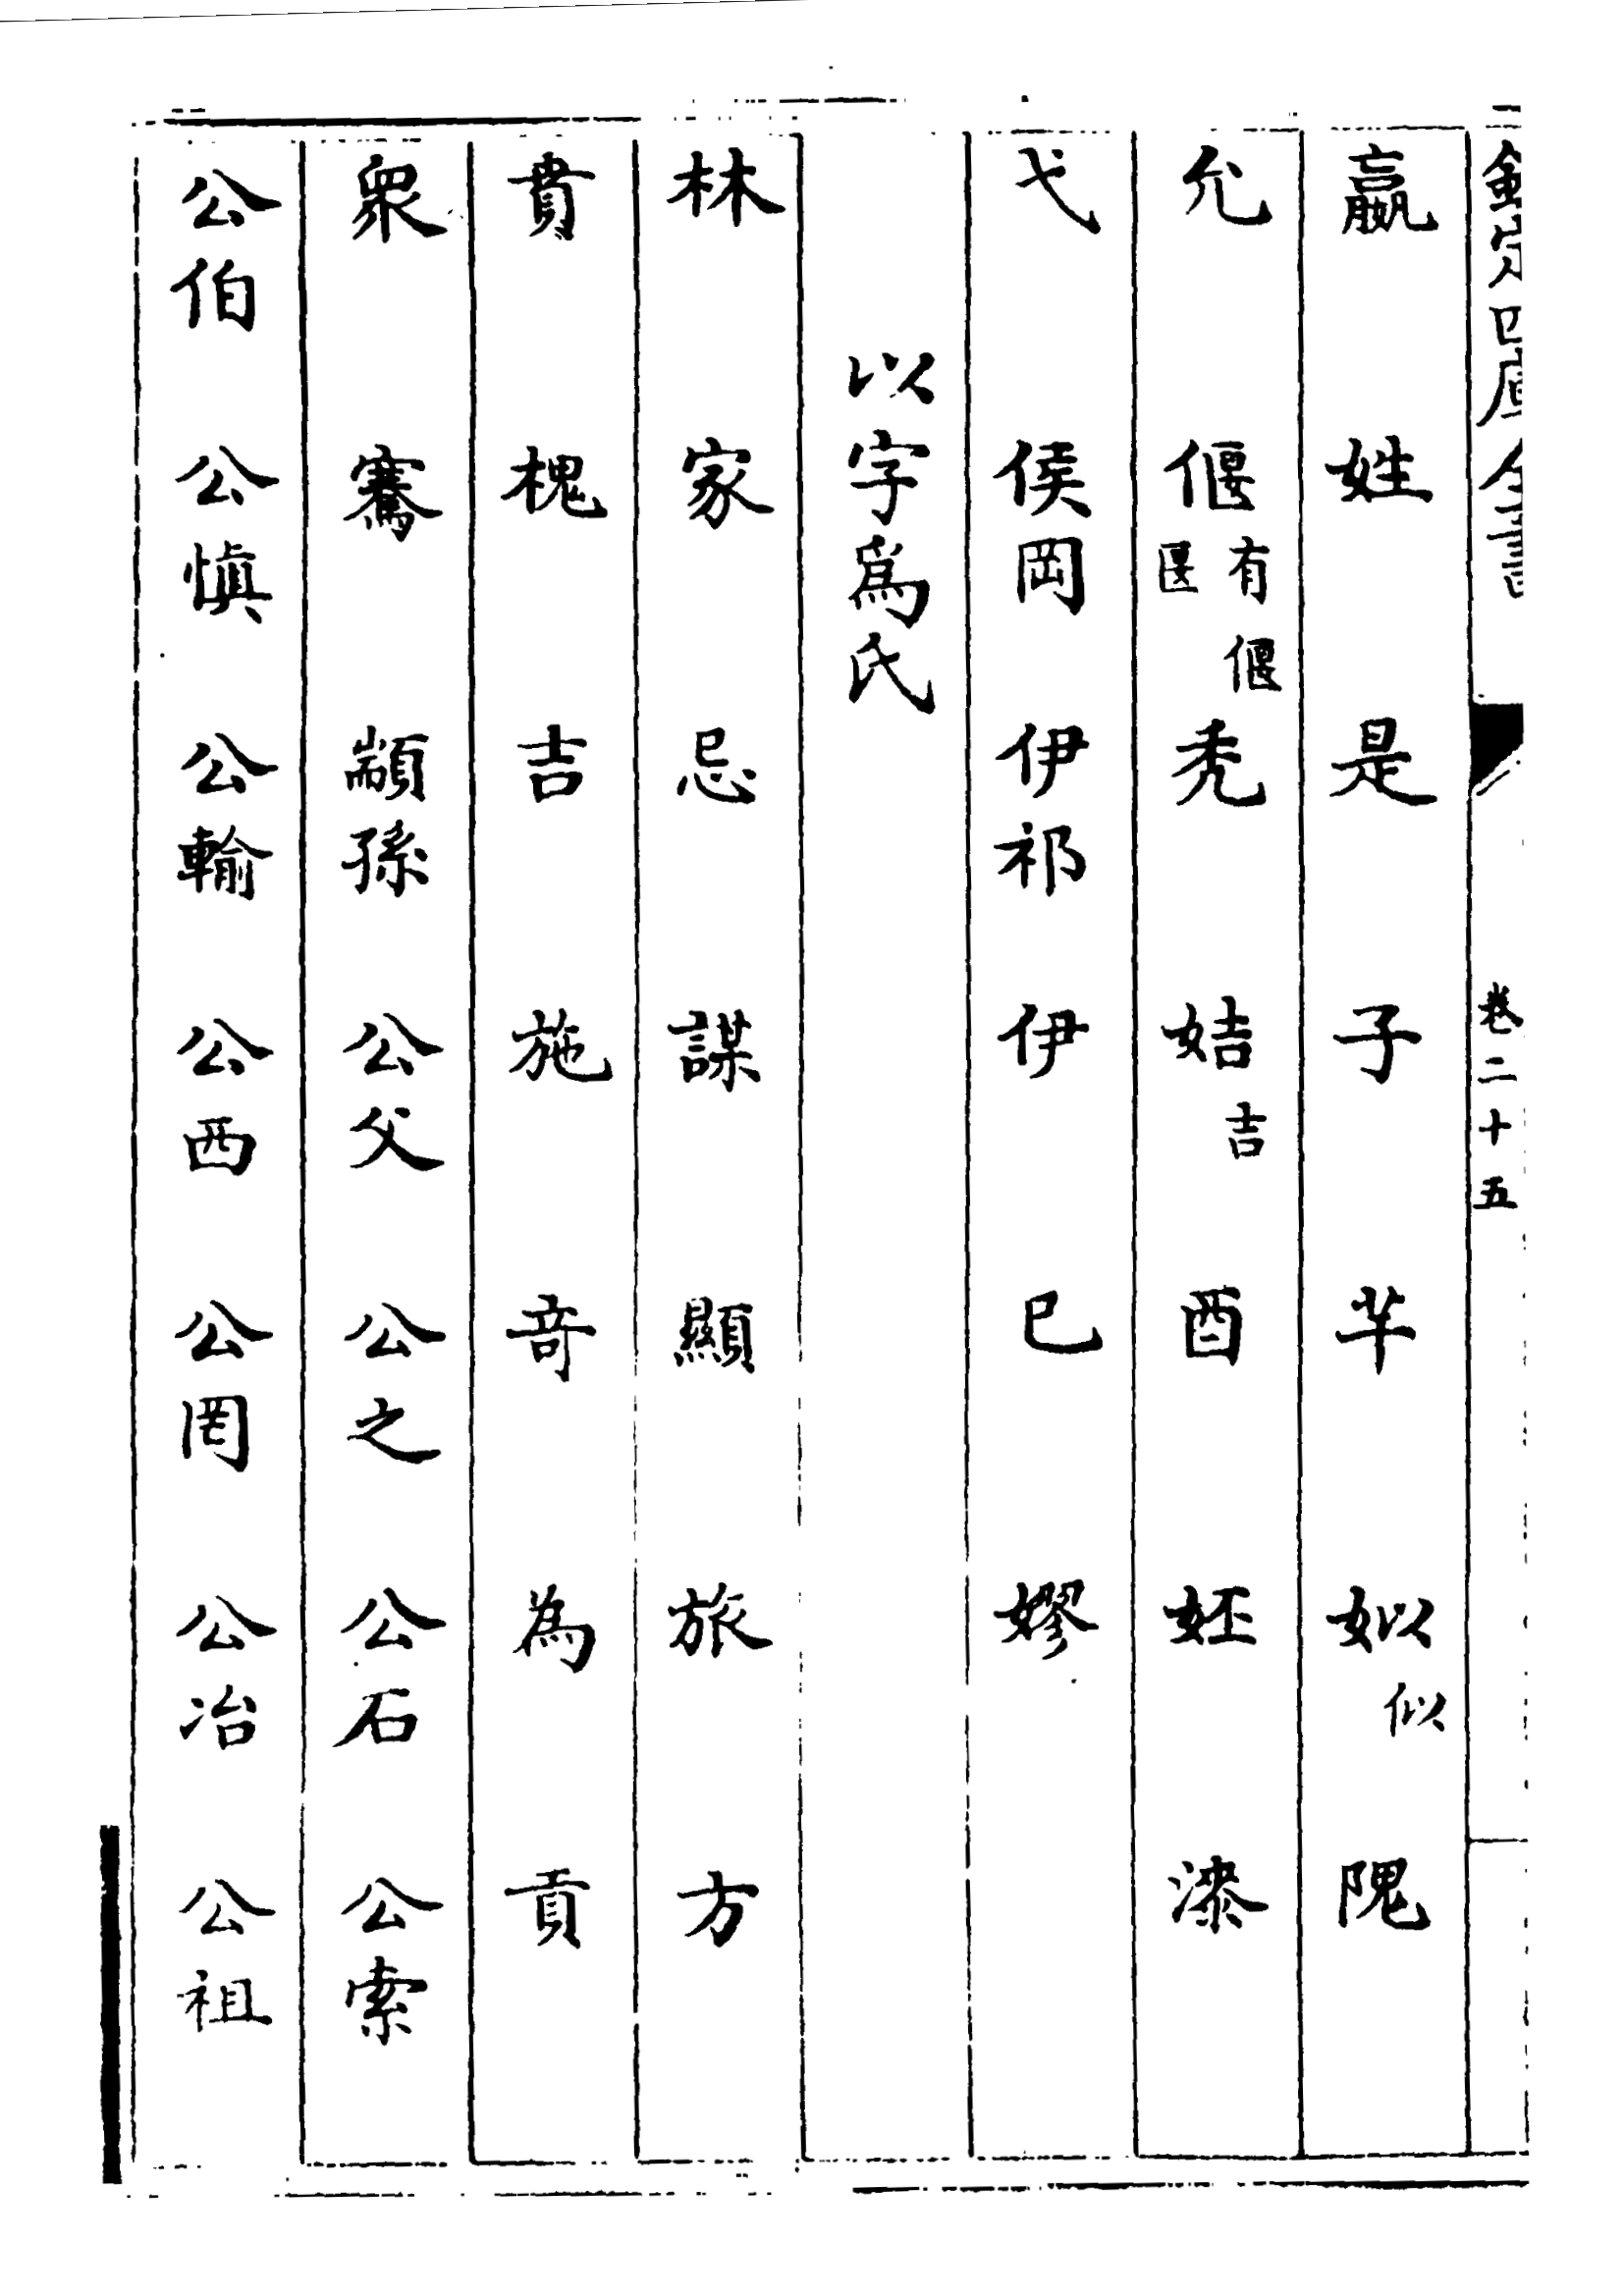 欽定四庫全書 卷二十五
嬴 姓 是 子 芈 姒似 隗
允 偃有偃匽 秃 姞吉 酉 妚 漆
弋 侯岡 伊祁 伊 巳 嫪
以字爲氏
林 家 忌 謀 顯 旅 方
賁 槐 吉 施 奇 為 貢
衆 騫 顓孫 公父 公之 公石 公索
公伯 公慎 公輸 公西 公罔 公冶 公祖